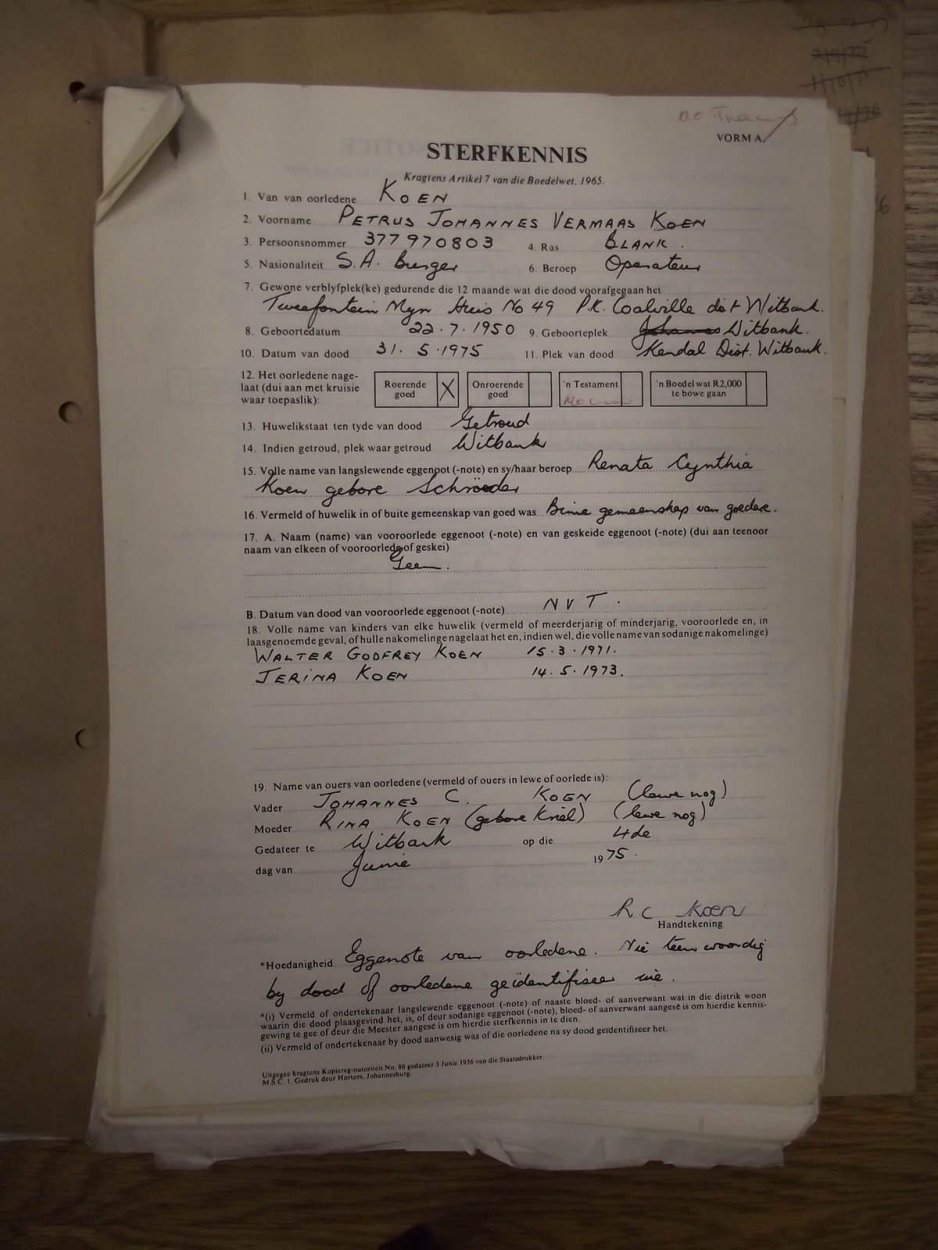 No
VORM A.
STERFKENNIS
Kragtens Artikel 7 van die Boedelwet, 1965.
1. Van van oorledene KOEN
2. Voorname PETRUS JOHANNES VERMAAS KOEN
3. Persoonsnommer 377970803 4. Ras BLANK.
5. Nasionaliteit S.A. Burger 6. Beroep Operateur
7. Gewone verblyfplek(ke) gedurende die 12 maande wat die dood voorafgegaan het
Tweefontein Myn Huis No 49 P.K. Coalville dist Witbank.
8. Geboortedatum 22.7.1950 9. Geboorteplek Johannes Witbank.
10. Datum van dood 31.5.1975 11. Plek van dood Kendal Dist. Witbank.
12. Het oorledene nage-
laat (dui aan met kruisie
waar toepaslik):
Roerende goed X
Onroerende goed
'n Testament
'n Boedel wat R2,000 te bowe gaan
13. Huwelikstaat ten tyde van dood Getroud
14. Indien getroud, plek waar getroud Witbank
15. Volle name van langslewende eggenoot (-note) en sy/haar beroep Renata Cynthia
Koen gebore Schröeder
16. Vermeld of huwelik in of buite gemeenskap van goed was Binne gemeenskap van goedere.
17. A. Naam (name) van vooroorlede eggenoot (-note) en van geskeide eggenoot (-note) (dui aan teenoor
naam van elkeen of vooroorlede of geskei)
Geen.
B. Datum van dood van vooroorlede eggenoot (-note) NVT.
18. Volle name van kinders van elke huwelik (vermeld of meerderjarig of minderjarig, vooroorlede en, in
laasgenoemde geval, of hulle nakomelinge nagelaat het en, indien wel, die volle name van sodanige nakomelinge)
WALTER GODFREY KOEN 15.3.1971.
JERINA KOEN 14.5.1973.
19. Name van ouers van oorledene (vermeld of ouers in lewe of oorlede is):
Vader JOHANNES C. KOEN (lewe nog)
Moeder RINA KOEN (gebore Kriel) (lewe nog)
Gedateer te Witbank op die 4de
dag van Junie 1975.
R C Koen
Handtekening
*Hoedanigheid Eggenote van oorledene. Nie teenwoordig
by dood of oorledene geïdentifiseer nie.
*(i) Vermeld of ondertekenaar langslewende eggenoot (-note) of naaste bloed- of aanverwant wat in die distrik woon
waarin die dood plaasgevind het, is, of deur sodanige eggenoot (-note), bloed- of aanverwant aangesê is om hierdie kennis-
gewing te gee of deur die Meester aangesê is om hierdie sterfkennis in te dien.
(ii) Vermeld of ondertekenaar by dood aanwesig was of die oorledene na sy dood geïdentifiseer het.
Uitgegee kragtens Kopiereg-outoriteit No. 86 gedateer 3 Junie 1936 van die Staatsdrukker.
M.S.C. 1. Gedruk deur Hortors, Johannesburg.